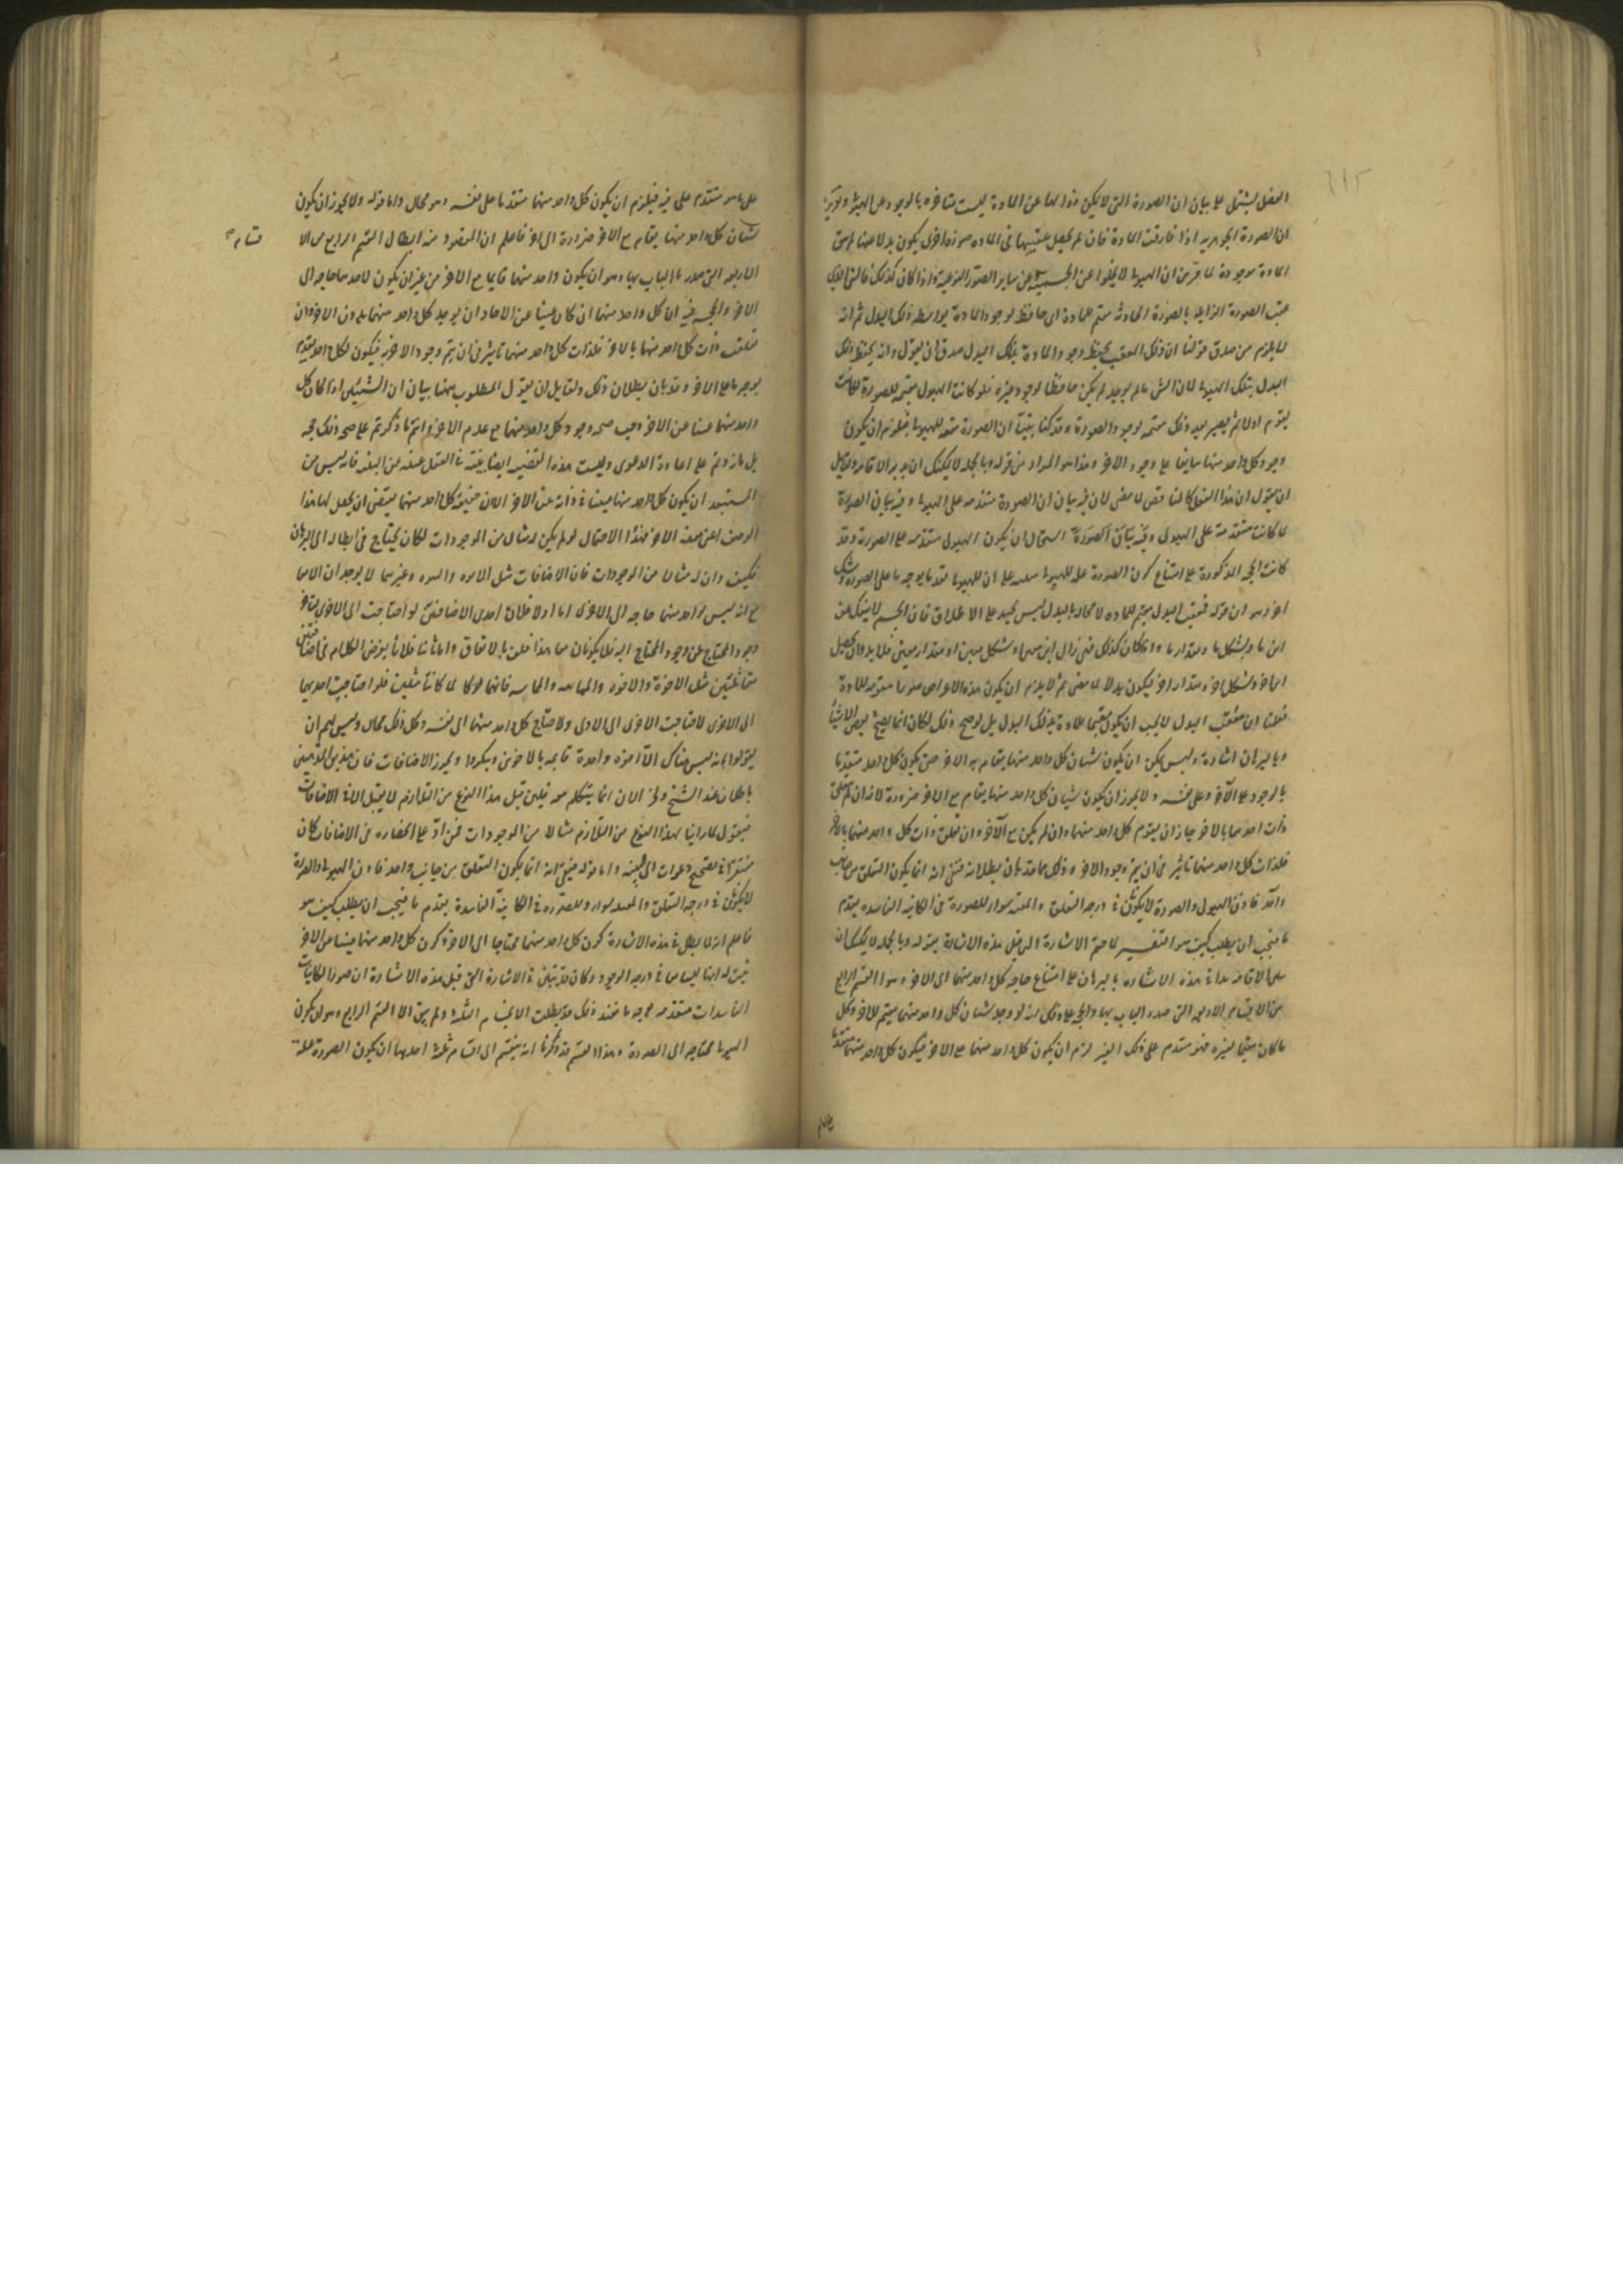 الفصل يشتمل على بيان ان الصورة التى لا يمكن خلوها عن المادة ليست متاخرة بالوجود عن الهيولى
ان الصورة الجوهريه اذا فارقت المادة فان لم يحصل عقيبها فى الماده صورة اخرى يكون بدلا عنها لم تبق
المادة موجودة لما مر من ان الهيولى لا يخلوا عن الجسمية وعن ساير الصور النوعية واذا كان كذلك فالشى الذى
عقب الصورة الزايلة بالصورة الحادثه مقيم للمادة اى حافظ لوجود المادة بواسطه ذلك البدل ثم انه
لا يلزم من صدق قولنا ان ذلك المعقب يحفظ وجود المادة بذلك البدل صدق ان يقول وانه يحفظ ذلك
البدل بتلك الهيولى لان الشى ما لم يوجد لم يكن حافظا لوجود غيره فلو كانت الهيولى مقيمة للصورة لكانت
يقوم اولا ثم يصير بعد ذلك مقيمه لوجود الصورة وقد كنا بينا ان الصورة مقيمه للهيولى فيلزم ان يكون
وجود كل واحد منهما سابقا على وجود الاخر وهذا هو المراد من قوله وبالجمله لا يمكنك ان تدير الاقامة ولقايل
ان يقول ان هذا الفصل كالمناقض لما مضى لان فيه بيان ان الصورة متقدمه على الهيولى وفيه بيان ان الصورة
لما كانت متقدمة على الهيولى استحال ان يكون الهيولى متقدمه على الصورة وقد
كانت الحجة المذكورة على امتناع كون الصورة علة للهيولى على ان للهيولى تقدما بوجه ما على الصورة وشك
اخر وهو ان قوله معقب البدل مقيم للماده لا محالة بالبدل ليس بجيد على الاطلاق فان الجسم لا ينفك عن
اين ما وشكل ما ومقدار ما واذا كان كذلك فمتى زال اين معين او شكل معين او مقدار معين فلا بد وان يحصل
اين اخر وشكل اخر ومقدار اخر فيكون بدلا لما مضى ثم لا يلزم ان يكون هذه الاعراض صورا مقومه للمادة
فعلمنا ان معقب البدل لا يجب ان يكون مقيما للمادة بذلك البدل بل لو صح ذلك لكان انما يصح ببعض الاشياء
وبالبرهان اشارة وليس يمكن ان يكون شيئان كل واحد منهما يقام به الاخر حتى يكون كل واحد متقدما
بالوجود على الاخر وعلى نفسه ولا يجوز ان يكون شيئان كل واحد منهما يقام مع الاخر ضرورة لانه ان لم يتعلق
ذات احدهما بالاخر جاز ان يقوم كل واحد منهما وان لم يكن مع الاخر وان تعلق ذات كل واحد منهما بالاخر
فلذات كل واحد منهما تاثير فى ان يتم وجود الاخر وذلك مما قد بان بطلانه فبقى انه انما يكون التعلق من جانب
واحد فاذن الهيولى والصورة لا يكونان فى درجه التعلق والمعية سواء وللصورة فى الكاينه الفاسده تقدم
ما فيجب ان يطلب كيف هو التفسير لما ختم الاشارة التى قبل هذه الاشارة بقوله وبالجمله لا يمكنك ان
تدير الاقامة بدا فى هذه الاشاره بالبرهان على امتناع حاجه كل واحد منهما الى الاخر وهو القسم الرابع
من الاقسام الاربعه التى صدر الباب بها والحجة على ذلك انه لو وجد شيئان كل واحد منهما مقيم للاخر وكل
ما كان مقيما لغيره فهو متقدم على ذلك الغير لزم ان يكون كل واحد منهما مع الاخر فيكون كل واحد منهما متقدما
على ما هو متقدم على غيره فيلزم ان يكون كل واحد منهما متقدما على نفسه وهو محال واما قوله ولا يجوز ان يكون
شيئان كل واحد منهما يقام مع الاخر ضرورة الى اخره فاعلم ان المقصود منه ابطال القسم الرابع من الا
قسام
الاربعه التى صدرنا الباب بها وهو ان يكون واحد منهما قايما مع الاخر من غير ان يكون لاحدهما حاجه الى
الاخر والحجة فيه ان كل واحد منهما ان كان غنيا عن الاخر جاز ان يوجد كل واحد منهما بدون الاخر وان
تعلقت ذات كل واحد منهما بالاخر فلذات كل واحد منهما تاثير فى ان يتم وجود الاخر فيكون لكل واحد تقدم
بوجه ما على الاخر وقد بان بطلان ذلك ولقايل ان يقول المطلوب ههنا بيان ان الشيئين اذا كان كل
واحد منهما غنيا عن الاخر وجب صحه وجود كل واحد منهما مع عدم الاخر وانتم ما ذكرتم على صحه ذلك حجه
بل ما زدتم على اعادة الدعوى وليست هذه القضيه ايضا بينة فى العقل غنية عن البينة فانه ليس من
المستبعد ان يكون كل واحد منهما غنيا فى ذاته عن الاخر الا ان حقيقة كل واحد منهما يقتضى ان يحصل لها هذا
الوصف اعنى معية الاخر فهذا الاحتمال لو لم يكن له مثال من الموجودات لكان يحتاج فى ابطاله الى البرهان
فكيف وان له مثالا من الموجودات فان الاضافات مثل الابوه والبنوه وغيرهما لا يوجدان الا معا
مع انه ليس لواحد منهما حاجه الى الاخرى اما اولا فلان احدى الاضافتين لو احتاجت الى الاخرى لتاخر
وجود المحتاج عن وجود المحتاج اليه فلا يكونان معا هذا خلف بالاتفاق واما ثانيا فلانا نفرض الكلام فى اضافتين
متماثلتين مثل الاخوة والاخوه والمماسه والمماسه فانهما لما كانتا مثلين فلو احتاجت احديهما
الى الاخرى لاحتاجت الاخرى الى الاولى ولاحتاج كل واحد منهما الى نفسه وكل ذلك محال وليس لهم ان
يقولوا بانه ليس هناك الا اخوة واحدة قايمه بالاخوين ويكون فان هذين المذهبين
باطلان عند الشيخ ونحن الان انما نتكلم معه فلئن قيل هذا النوع من التلازم لا يقبل الا فى الاضافات
فنقول لما راينا لهذا النوع من التلازم مثالا من الموجودات فمن ادعى انحصاره فى الاضافات كان
مفتقرا فى تصحيح دعواه الى البينه واما قوله فبقى انه انما يكون التعلق من جانب واحد فاذن الهيولى والصورة
لا يكونان فى درجه التعلق والمعيه سواء وللصورة فى الكاينة الفاسدة تقدم ما فيجب ان يطلب كيف هو
فاعلم انه لما بطل فى هذه الاشارة كون كل واحد منهما محتاجا الى الاخر وكون كل واحد منهما غنيا عن الاخر
ثبت انهما ليسا معا فى درجه الوجود وكان قد تبين فى الاشارة التى قبل هذه الاشارة ان صور الكاينات
الفاسدات متقدمه بوجه ما فعند ذلك قد بطلت الاقسام الثلثة ولم يبق الا القسم الرابع وهو ان يكون
الهيولى محتاجه الى الصورة وهذا القسم قد ذكرنا انه ينقسم الى اقسام ثلثة احدها ان يكون الصورة علة